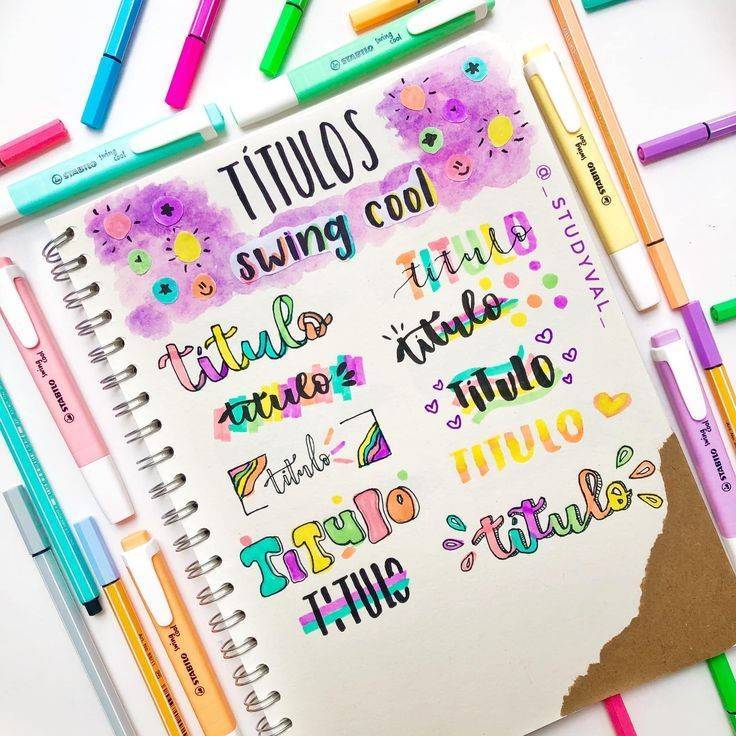 TÍTULOS
swing cool
título
título
título
título
Título
TÍTULO
título
título
TÍTULO
TITULO
título
@_STUDYVAL_
STABILO swing cool
STABILO swing cool
STABILO swing cool
STABILO swing cool
STABILO swing cool
STABILO swing cool